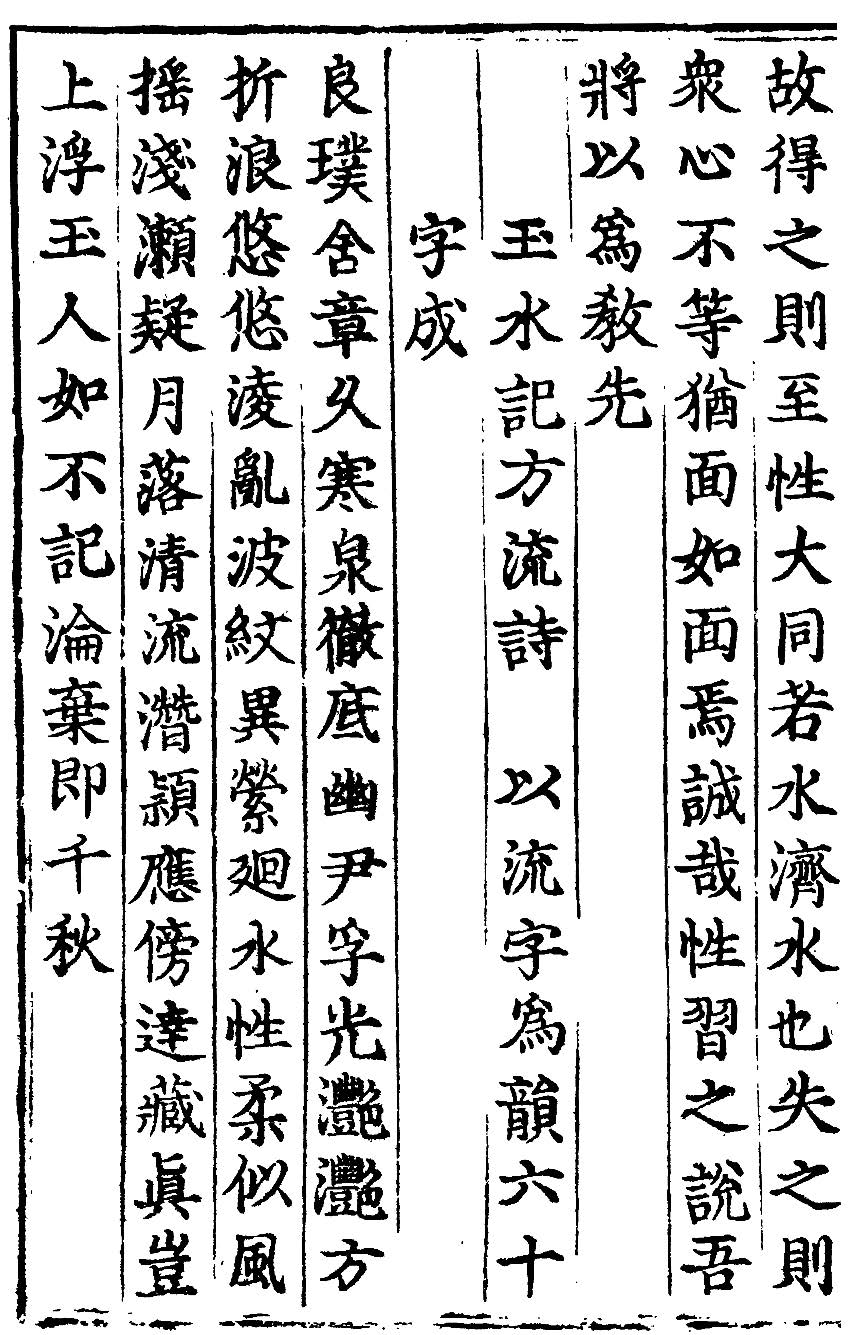 故得之則至性大同若水濟水也失之則
衆心不等猶面如面焉誠哉性習之說吾
將以爲教先
玉水記方流詩 以流字爲韻六十
字成
良璞含章久寒泉徹底幽尹孚光灎灎方
折浪悠悠淩亂波紋異縈廻水性柔似風
揺淺瀬疑月落清流潛穎應傍達藏眞豈
上浮玉人如不記淪棄即千秋